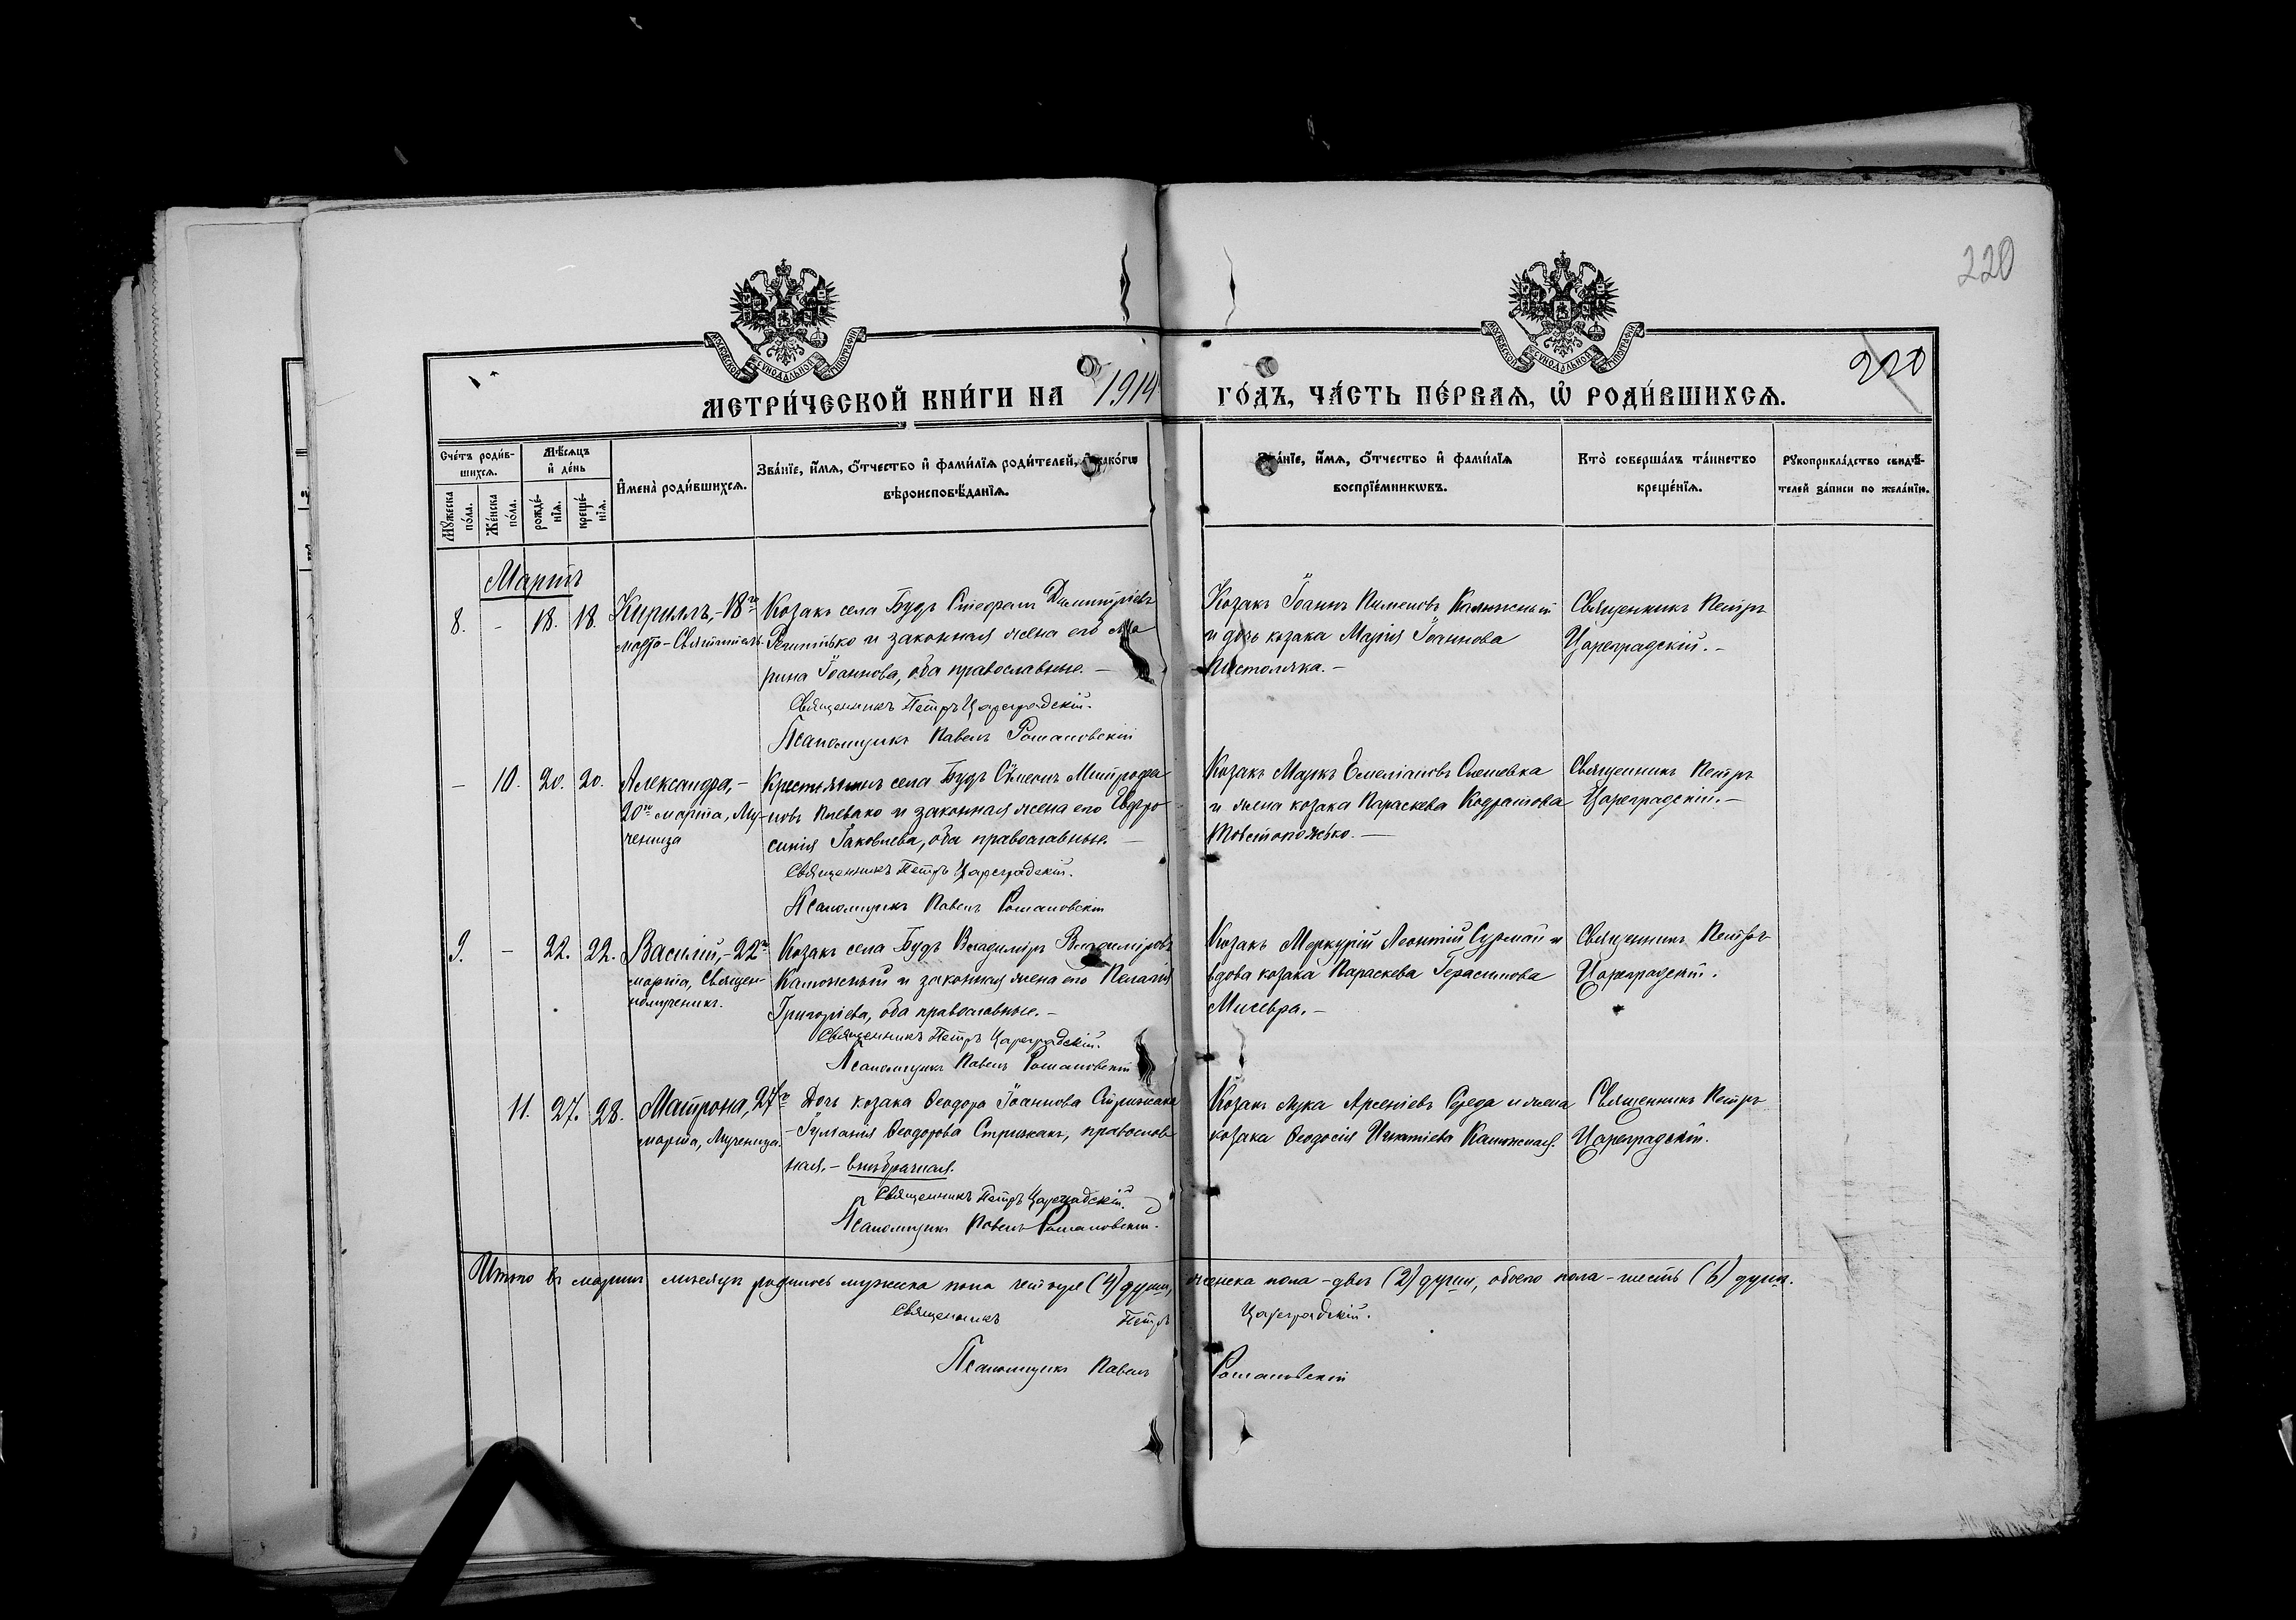 220
220
МОСКОВСКОЙ СѴНОДАЛЬНОЙ ТИПОГРАФІИ
МОСКОВСКОЙ СѴНОДАЛЬНОЙ ТИПОГРАФІИ
МЕТРИ́ЧЕСКОЙ КНИ́ГИ НА 1914 ГО́ДЪ, ЧА́СТЬ ПЕ́РВАЯ, Ѡ҆ РОДИ́ВШИХСѦ.
Сче́тъ роди́в-
шихсѧ.
Мꙋ́жеска по́ла.
Же́нска по́ла.
Мѣ́сѧцъ
и҆ де́нь
рожде́-
нїѧ.
креще́-
нїѧ.
И҆мена̀ роди́вшихсѧ.
Зва́нїе, и҆́мѧ, ѻ҆́тчество и҆ фами́лїѧ роди́телей, и҆ како́гѡ
вѣроисповѣ́данїѧ.
Зва́нїе, и҆́мѧ, ѻ҆́тчество и҆ фами́лїѧ
воспрїе́мникѡвъ.
Кто̀ соверша́лъ та́инство
креще́нїѧ.
Рꙋкоприкла́дство свидѣ́-
телей за́писи по жела́нїю.
Мартъ
8. - 18. 18.
Кириллъ,-18го
марта-Святитель.
Козакъ села Будъ Стефанъ Димитріевъ
и законная жена его Ма
рина Іоаннова, оба православные.-
Священникъ Петръ Цареградскій.
Псаломщикъ Павелъ Романовскій
Козакъ Іоаннъ Пименовъ Калюжный
и дочь козака Марія Іоаннова
Пистоляка.-
Священникъ Петръ
Цареградскій.-
- 10. 20. 20.
Александра,-
20го марта, Му-
ченица
Крестьянинъ села Будъ Сѵмеонъ Митрофа
новъ Пивако и законная жена его Евфро
синія Іаковлева, оба православные.-
Священникъ Петръ Цареградскій.
Псаломщикъ Павелъ Романовскій
Козакъ Маркъ Емеліановъ
и жена козака Параскева Кодратова
Товстоножько.-
Священникъ Петръ
Цареградскій.-
9. - 22. 22.
Василій,-22го
марта, Священ-
номученикъ.
Козакъ села Будъ Владиміръ Владиміровъ
Калюжный и законная жена его Пелагія
Григоріева, оба православные.-
Священникъ Петръ Цареградскій.
Псаломщикъ Павелъ Романовскій
Козакъ Меркурій Леонтій Сурмай и
вдова козака Параскева Герасимова
Мисевра.-
Священникъ Петръ
Цареградскій.
11. 27. 28.
Матрона, 27го
марта, Мученица.
Дочь козака Ѳеодора Іоаннова Стрижака
-Іуліанія Ѳеодорова Стрижакъ, православ
ная.-внѣбрачная.
Священникъ Петръ Цареградскій.
Псаломщикъ Павелъ Романовскій.
Козакъ Лука Арсеніевъ Середа и жена
козака Ѳеодосія Игнатіева Калюжная.
Священникъ Петръ
Цареградскій.
Итого въ мартѣ мѣсяцѣ родилось мужеска пола четыре (4) души, женска пола-двѣ (2) души, обоего пола-шесть (6) душъ.
Священникъ Петръ Цареградскій.
Псаломщикъ Павелъ Романовскій